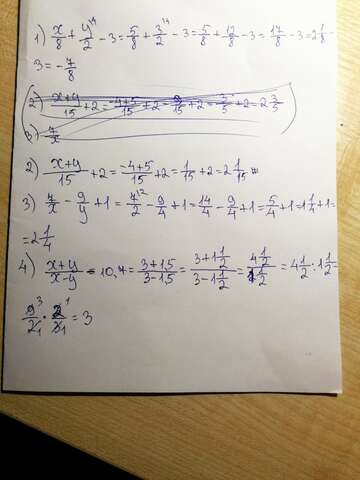 1) x/8 + y/2 - 3 = 5/8 + 3/2 - 3 = 5/8 + 12/8 - 3 = 17/8 - 3 = 2 1/8 -
3 = - 7/8
2) x+y/15 + 2 = -4+5/15 + 2 = 9/15 + 2 = 3/5 + 2 = 2 3/5
3) 7/x
2) x+y/15 + 2 = -4+5/15 + 2 = 1/15 + 2 = 2 1/15
3) 7/x - 9/y + 1 = 7/2 - 9/4 + 1 = 14/4 - 9/4 + 1 = 5/4 + 1 = 1 1/4 + 1 =
= 2 1/4
4) x+y/x-y = 3+1,5/3-1,5 = 3+1 1/2/3-1 1/2 = 4 1/2/1 1/2 = 4 1/2 : 1 1/2 =
9/2 · 2/3 = 3